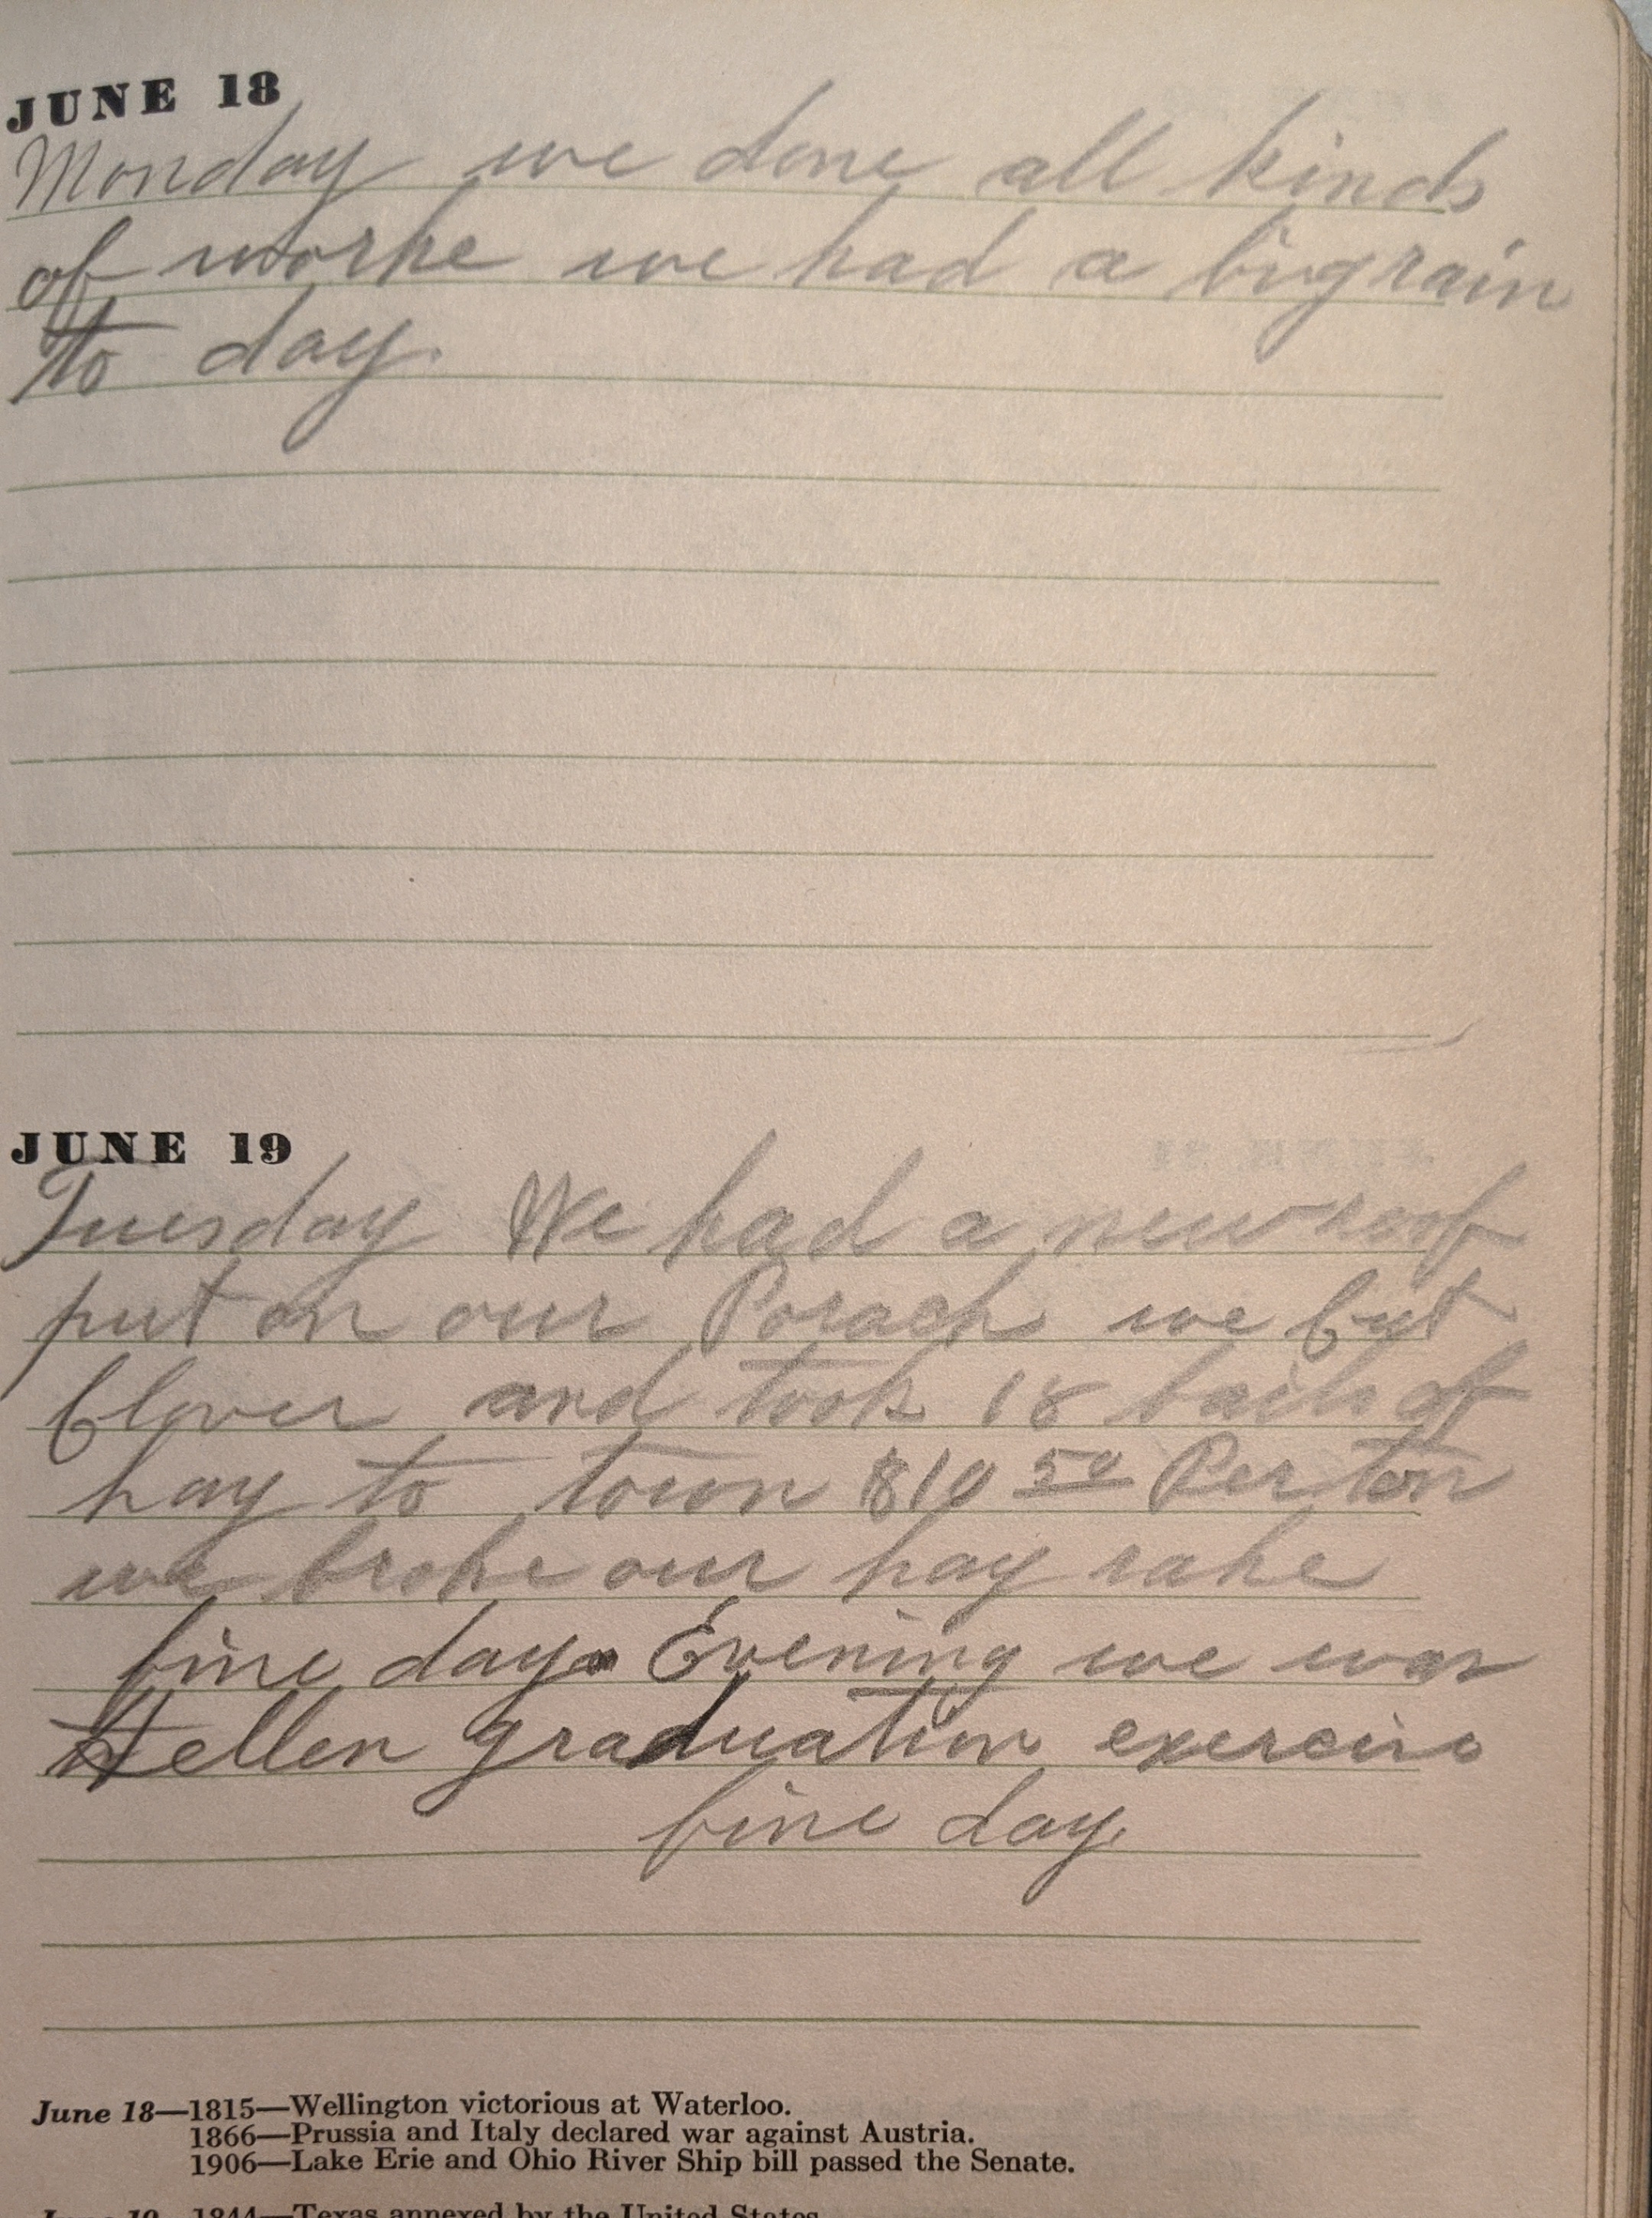 JUNE 18
Monday we done all kinds
of worke we had a big rain
to day.
JUNE 19
Tuesday We had a new roof
put on our Porach we Cut
Clover and took 18 bails of
hay to town $10 50 Per ton
we broke our hay rake
fine day Evening we was
Hellen graduation exercise
fine day.
June 18—1815—Wellington victorious at Waterloo.
1866—Prussia and Italy declared war against Austria.
1906—Lake Erie and Ohio River Ship bill passed the Senate.
June 19—1844—Texas annexed by the United States.